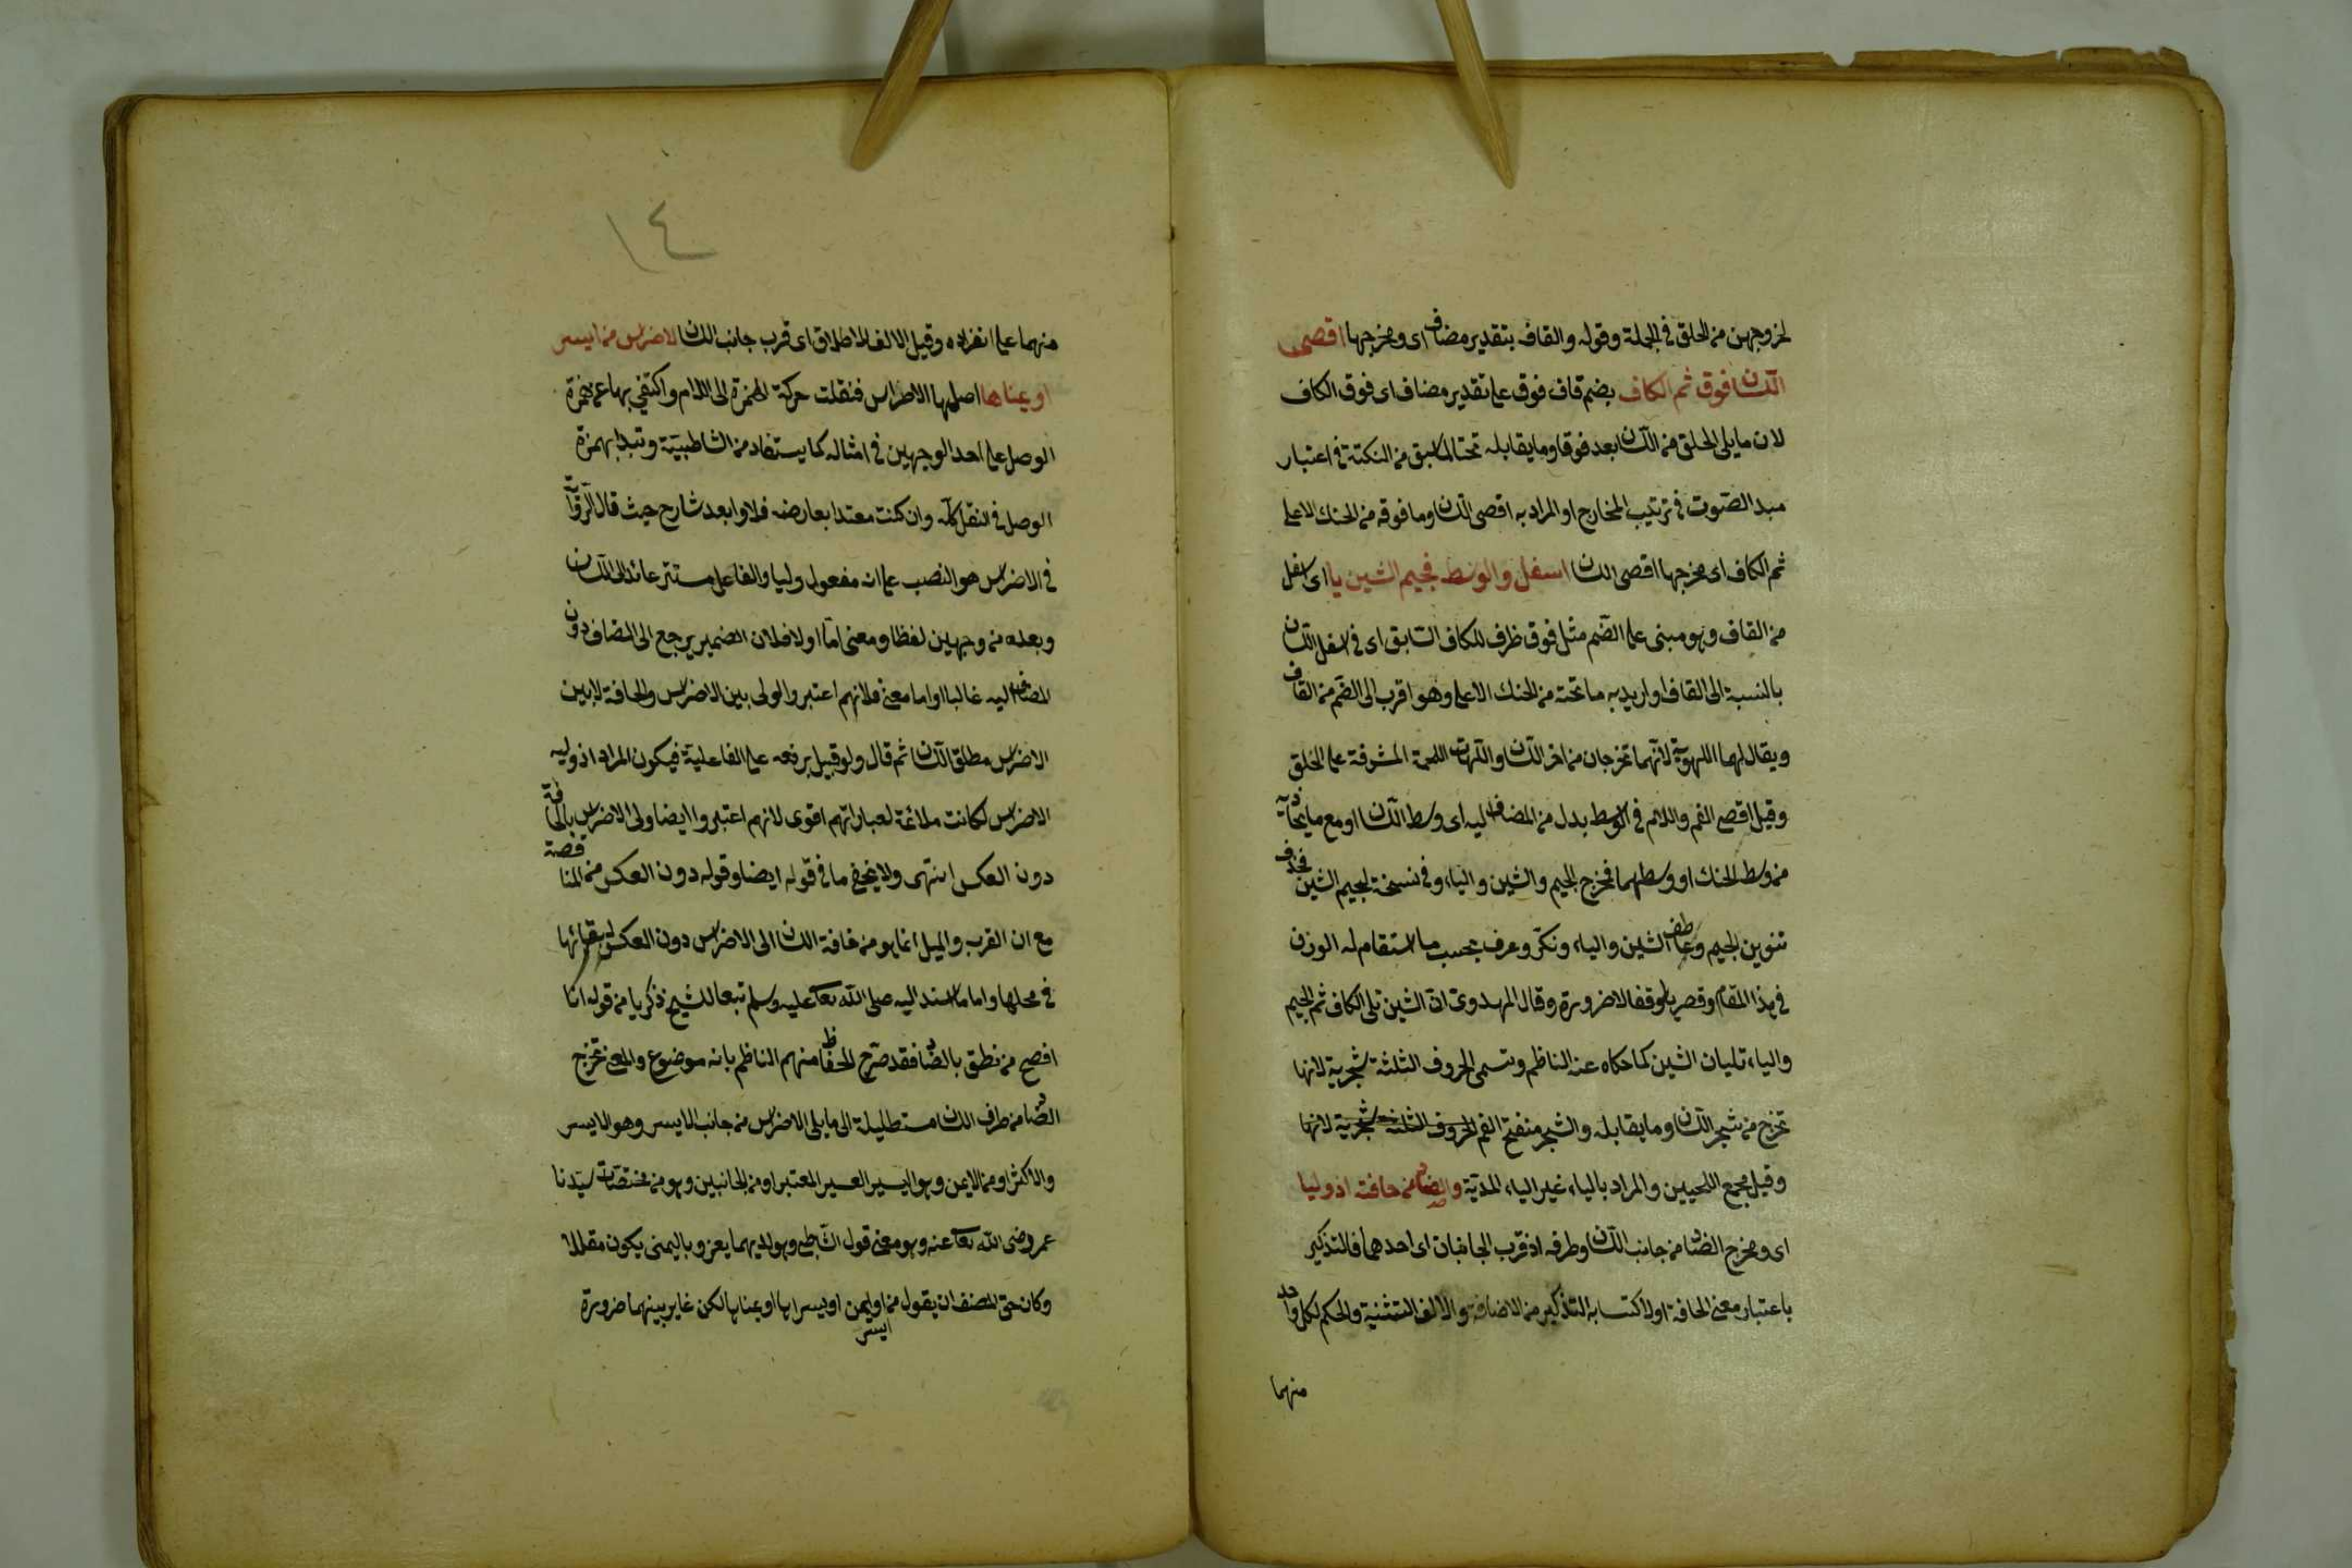 لخروجهن من الحلق في الجملة وقوله والقاف بتقدير مضاف اى ومخرجها اقصى
اللسان فوق ثم الكاف بضم قاف فوق على تقدير مضاف اى فوق الكاف
لان ما يلى الحلق من اللسان بعد فوقا وما يقابله تحتا لما سبق من النكتة فى اعتبار
مبدا الصوت فى ترتيب المخارج او المراد به اقصى اللسان وما فوقه من الحنك الاعلى
ثم الكاف اى مخرجها اقصى اللسان اسفل والوسط فجيم الشين يا اى اسفل
من القاف وهو مبنى على الضم مثل فوق ظرف للكاف السابق اى فى اسفل اللسان
بالنسبة الى القاف او اريد به ما تحته من الحنك الاعلى وهو اقرب الى الضم من القاف
ويقال لهما اللهوية لانهما تخرجان من اخر اللسان واللهات اللحمة المشرفة على الحلق
وقيل اقصى الفم واللام فى الوسط بدل من المضاف اليه اى وسط اللسان او مع ما يحاذيه
من وسط الحنك او وسطهما فمخرج الجيم والشين والياء وفى نسخة لجيم الشين فحذف
تنوين الجيم وعاطف الشين والياء ونكر وعرف بحسب ما استقام له الوزن
فى هذا المقام وقصر يا وقفا لا ضرورة وقال المهدوى ان الشين تلى الكاف ثم الجيم
والياء تليان الشين كما حكاه عنه الناظم وتسمى الحروف الثلثة شجرية لانها
تخرج من شجر اللسان وما يقابله والشجر منفتح الفم الحروف الثلثة شجرية لانها
وقيل مجمع اللحيين والمراد بالياء غير الياء المدية والضاد من حافته اذ وليا
اى ومخرج الضاد من جانب اللسان وطرفه اذ قرب الجانبان اى احدهما فالتذكير
باعتبار معنى الحافة او لاكتسابه التذكير من الاضافة والالف للتثنية والحكم لكل واحد
منهما
١٤
منهما على انفراده وقيل الالف للاطلاق اى قرب جانب اللسان لاضراس من ايسر
او يمناها اصلها الاضراس فنقلت حركة الهمزة الى اللام واكتفي بها عن همزة
الوصل على احد الوجهين فى امثاله كما يستفاد من الشاطبية وتبدا بهمزة
الوصل فى النقل كله وان كنت معتدا بعارضه فلا وابعد شارح حيث قال الرواية
فى الاضراس هو النصب على انه مفعول وليا والفاعل مستتر عائد الى اللسان
وبعده من وجهين لفظا ومعنى اما اولا فلان الضمير يرجع الى المضاف دون
المضاف اليه غالبا واما معنى فلانهم اعتبروا الولى بين الاضراس والحافة لا بين
الاضراس مطلق اللسان ثم قال ولو قيل برفعه على الفاعلية فيكون المراد اذ وليه
الاضراس لكانت ملائمة لعباراتهم اقوى لانهم اعتبروا ايضا ولى الاضراس بالحافة
دون العكس انتهى ولا يخفى ما فى قوله ايضا وقوله دون العكس من المناقصة
مع ان القرب والميل انما هو من حافة اللسان الى الاضراس دون العكس لبقائها
فى محلها واما ما اسند اليه صلى الله تعا عليه وسلم تبعا للشيخ زكريا من قوله انا
افصح من نطق بالضاد فقد صرح الحفاظ منهم الناظم بانه موضوع والمعنى تخرج
الضاد من طرف اللسان مستطيلة الى ما يلى الاضراس من جانب الايسر وهو الايسر
والاكثر او من الايمن وهو اليسير العسير المعتبر او من الجانبين وهو من مختصات سيدنا
عمر رضى الله تعا عنه وهو معنى قول الشاطبى وهو لديهما يعز وباليمنى يكون مقللا
وكان حق المصنف ان يقول من ايسر او ايمن او يسراها او يمناها لكن غاير بينهما ضرورة